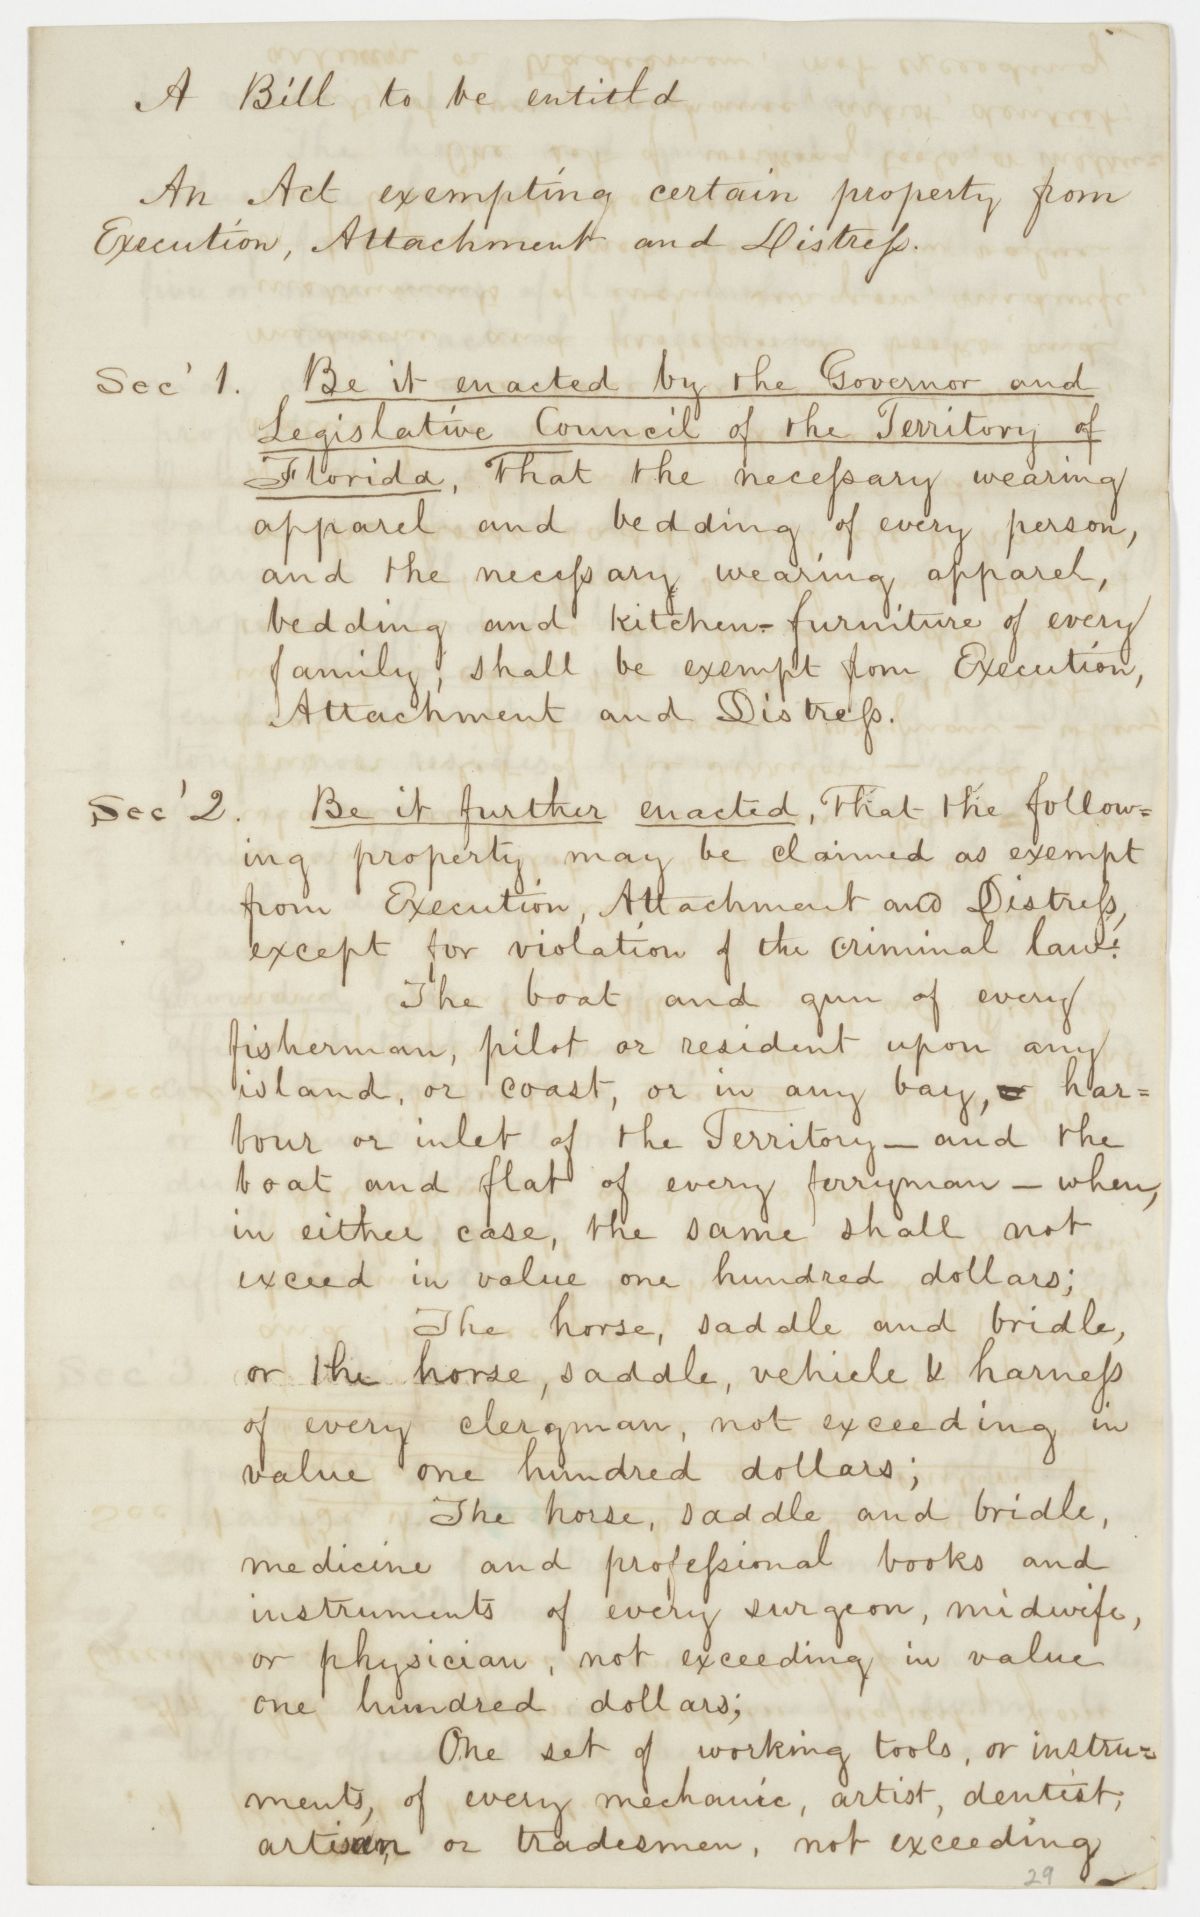 A Bill to be entitld
An Act exempting certain property from
Execution, Attachment and Distress.
Sec' 1. Be it enacted by the Governor and
Legislative Council of the Territory of
Florida, That the necessary wearing
apparel and bedding of every person,
and the necessary wearing apparel,
bedding and kitchen-furniture of every
family, shall be exempt fom Execution,
Attachment and Distress.
Sec' 2. Be it further enacted, That the follow=
ing property may be claimed as exempt
from Execution, Attachment and Distress,
except for violation of the criminal law:
The boat and gun of every
fisherman, pilot or resident upon any
island, or coast, or in any bay, har=
bour or inlet of the Territory — and the
boat and flat of every ferryman — when,
in either case, the same shall not
exceed in value one hundred dollars;
The horse, saddle and bridle,
or the horse, saddle, vehicle & harness
of every clergman, not exceeding in
value one hundred dollars;
The horse, saddle and bridle,
medicine and professional books and
instruments of every surgeon, midwife,
or physician, not exceeding in value
one hundred dollars;
One set of working tools, or instru=
ments, of every mechanic, artist, dentist,
artisan, or tradesmen, not exceeding
29